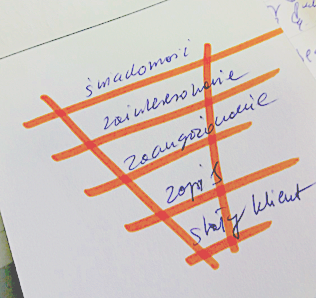 świadomość
zainteresowanie
zaangażowanie
zapis
stały klient